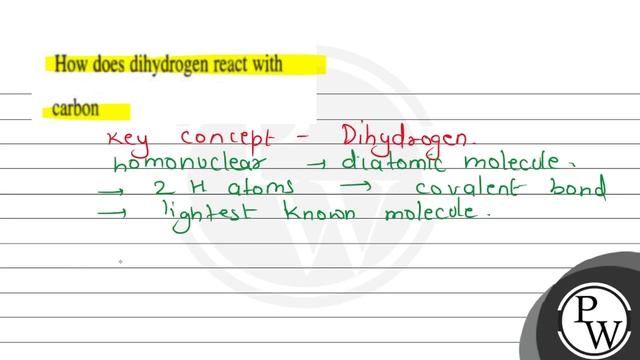 How does dihydrogen react with
carbon
Key concept - Dihydrogen.
homonuclear → diatomic molecule.
→ 2 H atoms → covalent bond
→ lightest known molecule.
P
W